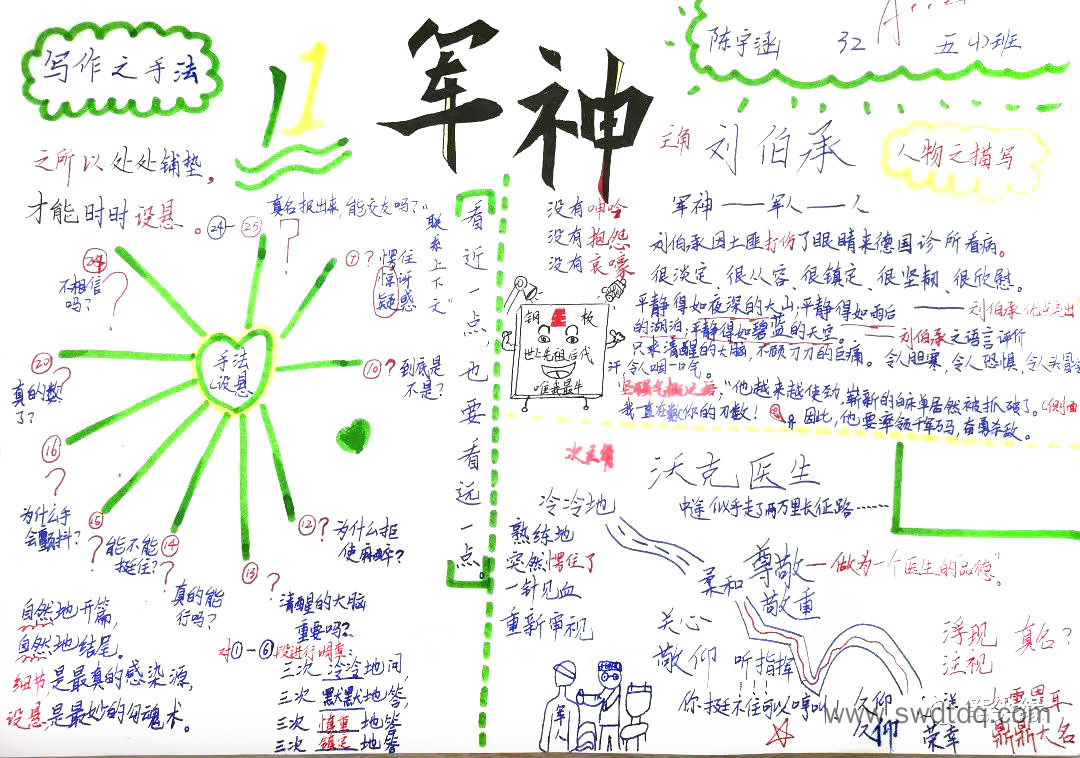 写作之手法
1
军神
陈宇涵 32 五(1)班
之所以处处铺垫，
才能时时设悬。
主角 刘伯承
人物之描写
军神——军人——人
刘伯承因土匪打伤了眼睛来德国诊所看病。
很淡定、很从容、很镇定、很坚韧、很欣慰。
平静得如夜深的大山；平静得如雨后——刘伯承优点突出
的湖泊；平静得如碧蓝的天空。——刘伯承之语言评价
只求清醒的大脑，不顾刀刀的巨痛。令人胆寒，令人恐惧，令人头冒冷
汗，令人咽一口气。
"他越来越使劲，崭新的白床单居然被抓破了。(侧面
我一直在数你的刀数！
因此，他要率领千军万马，奋勇杀敌。
没有呻吟
没有抱怨
没有哀嚎
钢 板
世上先祖后代
唯我最牛
看近一点，也要看远一点。
联系上下文
手法
设悬
㉔-㉕ 真名报出来，能交友吗？"
⑦？愣住
惊讶
疑惑
⑩？到底是
不是？
⑫？为什么拒
使麻醉？
⑬？
清醒的大脑
重要吗？
⑭？
真的能
行吗？
⑮？能不能
挺住？
⑯？
为什么手
会颤抖？
⑳？
真的数
了？
㉔？
不相信
吗？
自然地开篇，
自然地结尾。
细节是最真的感染源，
设悬是最妙的勾魂术。
对①-⑥段进行调查：
三次冷冷地问，
三次默默地答，
三次慎重地答
三次镇定地答
次主角
沃克医生
中途似乎走了两万里长征路……
冷冷地
熟练地
突然愣住了
一针见血
重新审视
柔和
尊敬——做为一个医生的品德"。
敬重
关心
敬仰 听指挥
你挺不住可以哼叫
军人
浮现 真名？
注视
久仰 如雷贯耳
久仰 荣幸 鼎鼎大名
www.swdtdq.com